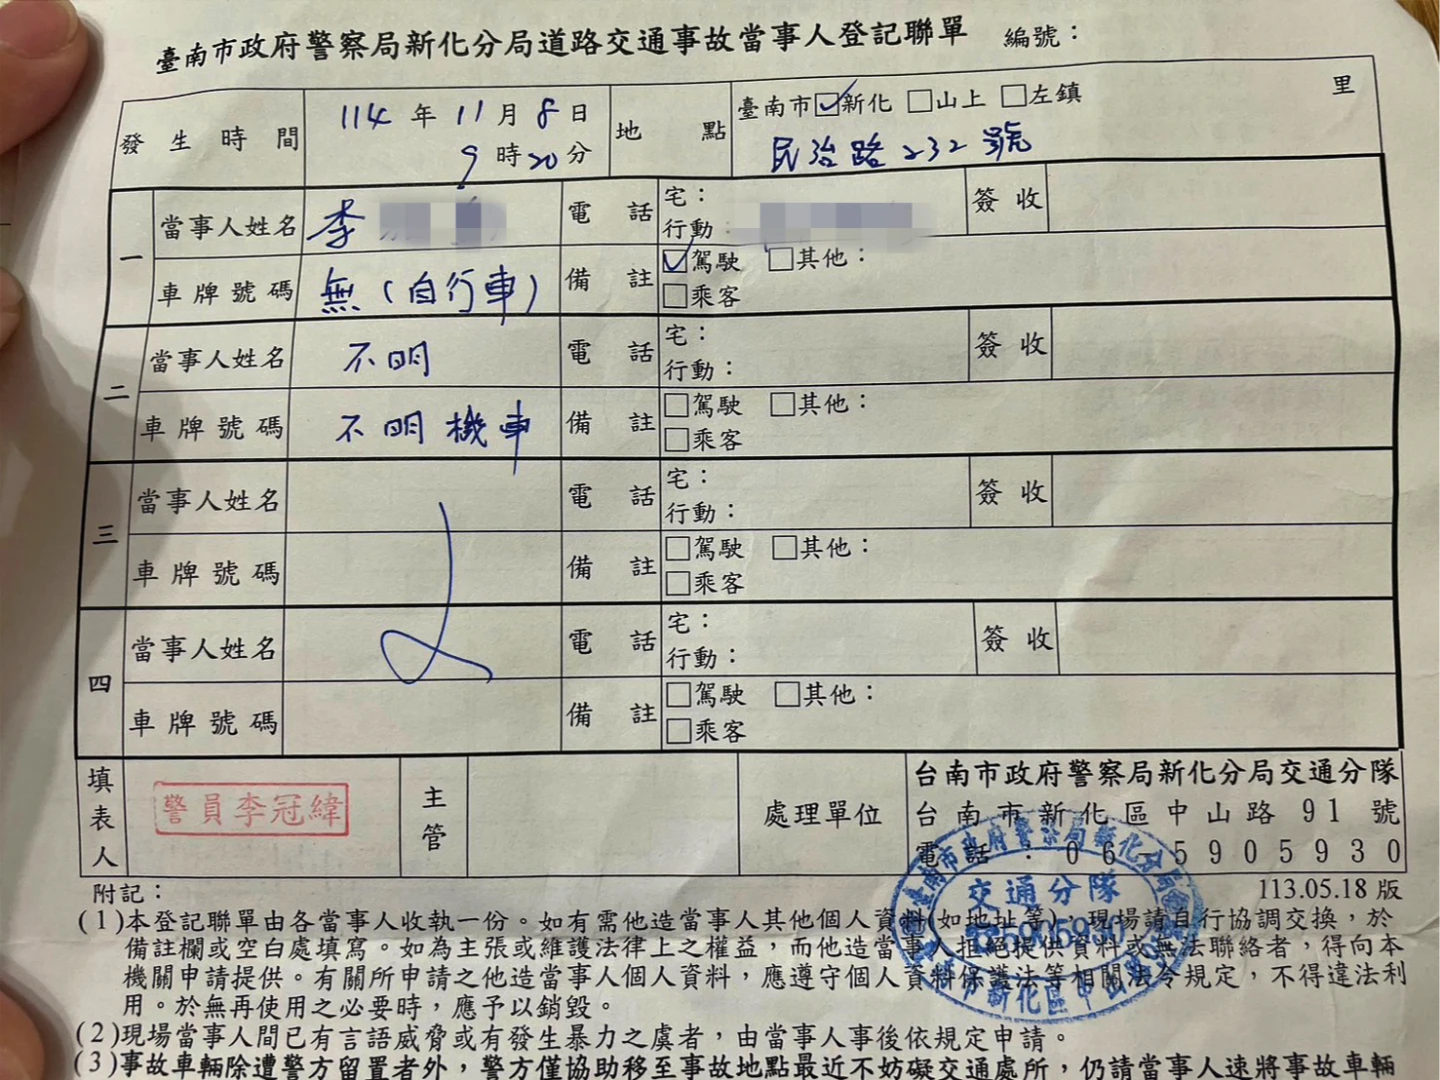 臺南市政府警察局新化分局道路交通事故當事人登記聯單 編號：
發生時間 114年11月8日 地點 臺南市☑新化 □山上 □左鎮 里
9時20分 民治路232號
一 當事人姓名 李 電話 宅： 簽收
行動：
車牌號碼 無(自行車) 備註 ☑駕駛 □其他：
□乘客
二 當事人姓名 不明 電話 宅： 簽收
行動：
車牌號碼 不明機車 備註 □駕駛 □其他：
□乘客
三 當事人姓名 電話 宅： 簽收
行動：
車牌號碼 備註 □駕駛 □其他：
□乘客
四 當事人姓名 電話 宅： 簽收
行動：
車牌號碼 備註 □駕駛 □其他：
□乘客
填表人 警員李冠緯 主管 處理單位 台南市政府警察局新化分局交通分隊
台南市新化區中山路91號
電話：06-5905930
臺南市政府警察局新化分局
交通分隊
113.05.18版
附記：
(1)本登記聯單由各當事人收執一份。如有需他造當事人其他個人資料(如地址等)，現場請自行協調交換，於
備註欄或空白處填寫。如為主張或維護法律上之權益，而他造當事人拒絕提供資料或無法聯絡者，得向本
機關申請提供。有關所申請之他造當事人個人資料，應遵守個人資料保護法等相關法令規定，不得違法利
用。於無再使用之必要時，應予以銷毀。
(2)現場當事人間已有言語威脅或有發生暴力之虞者，由當事人事後依規定申請。
(3)事故車輛除遭警方留置者外，警方僅協助移至事故地點最近不妨礙交通處所，仍請當事人速將事故車輛